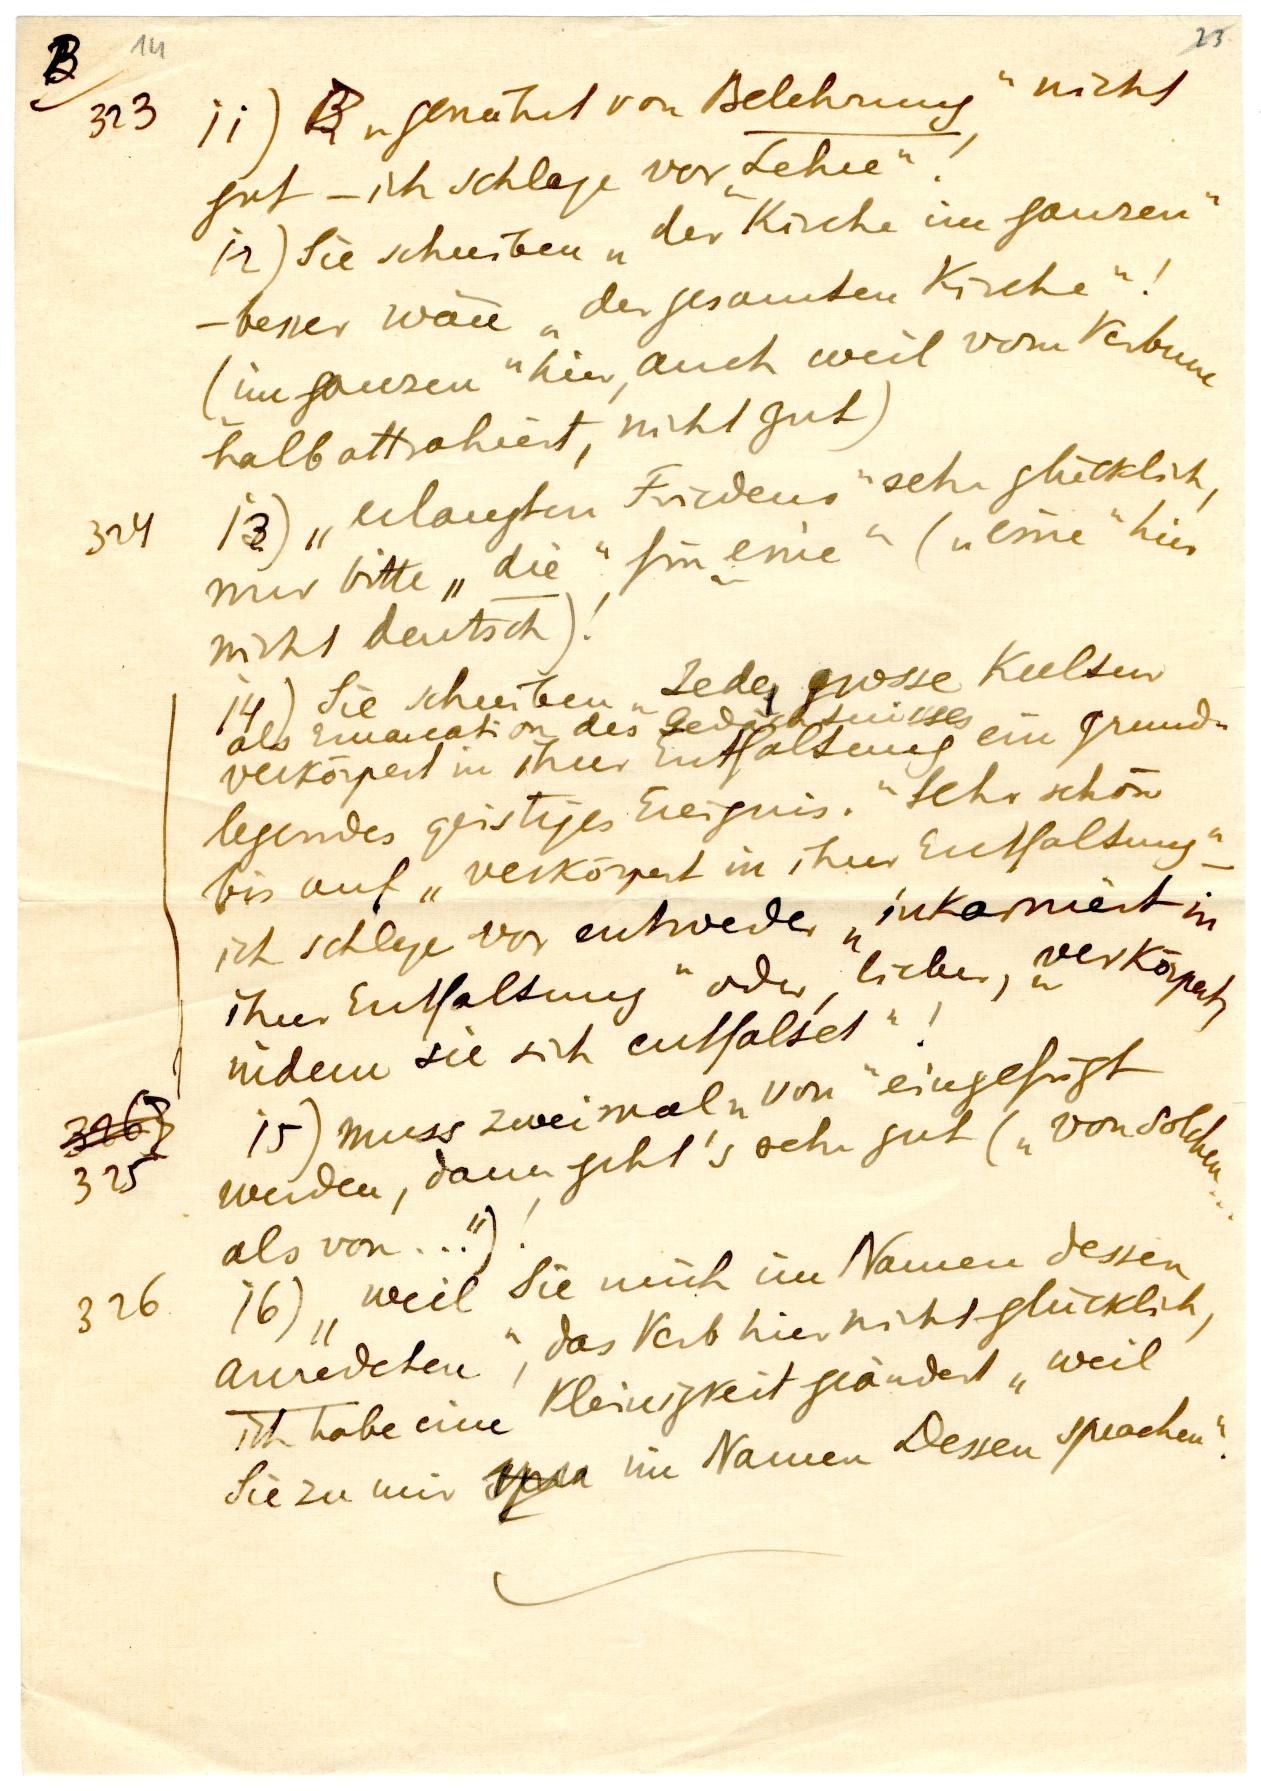 B 14 23
323 11) „genährt von Belehrung“ nicht
gut – ich schlage vor „Lehre“!
12) Sie schreiben „der Kirche im ganzen“
– besser wäre „der gesamten Kirche“!
(„im ganzen“ hier, auch weil vom Verbum
halb attrahiert, nicht gut)
324 13) „erlangten Friedens“ sehr glücklich,
nur bitte „die“ für „eine“ („eine“ hier
nicht deutsch)!
14) Sie schreiben „Jede grosse Kultur
als Emanation des Gedächtnisses
verkörpert in ihrer Entfaltung ein grund-
legendes geistiges Ereignis.“ Sehr schön
bis auf „verkörpert in ihrer Entfaltung“ –
ich schlage vor entweder „inkarniert in
ihrer Entfaltung“ oder, lieber, „verkörpert,
indem sie sich entfaltet“!
326
325 15) muss zweimal „von“ eingefügt
werden, dann geht's sehr gut („von solchen ...
als von ...“)!
326 16) „weil Sie mich im Namen dessen
anredeten“, das Verb hier nicht glücklich,
ich habe eine Kleinigkeit geändert „weil
Sie zu mir im Namen Dessen sprachen“.